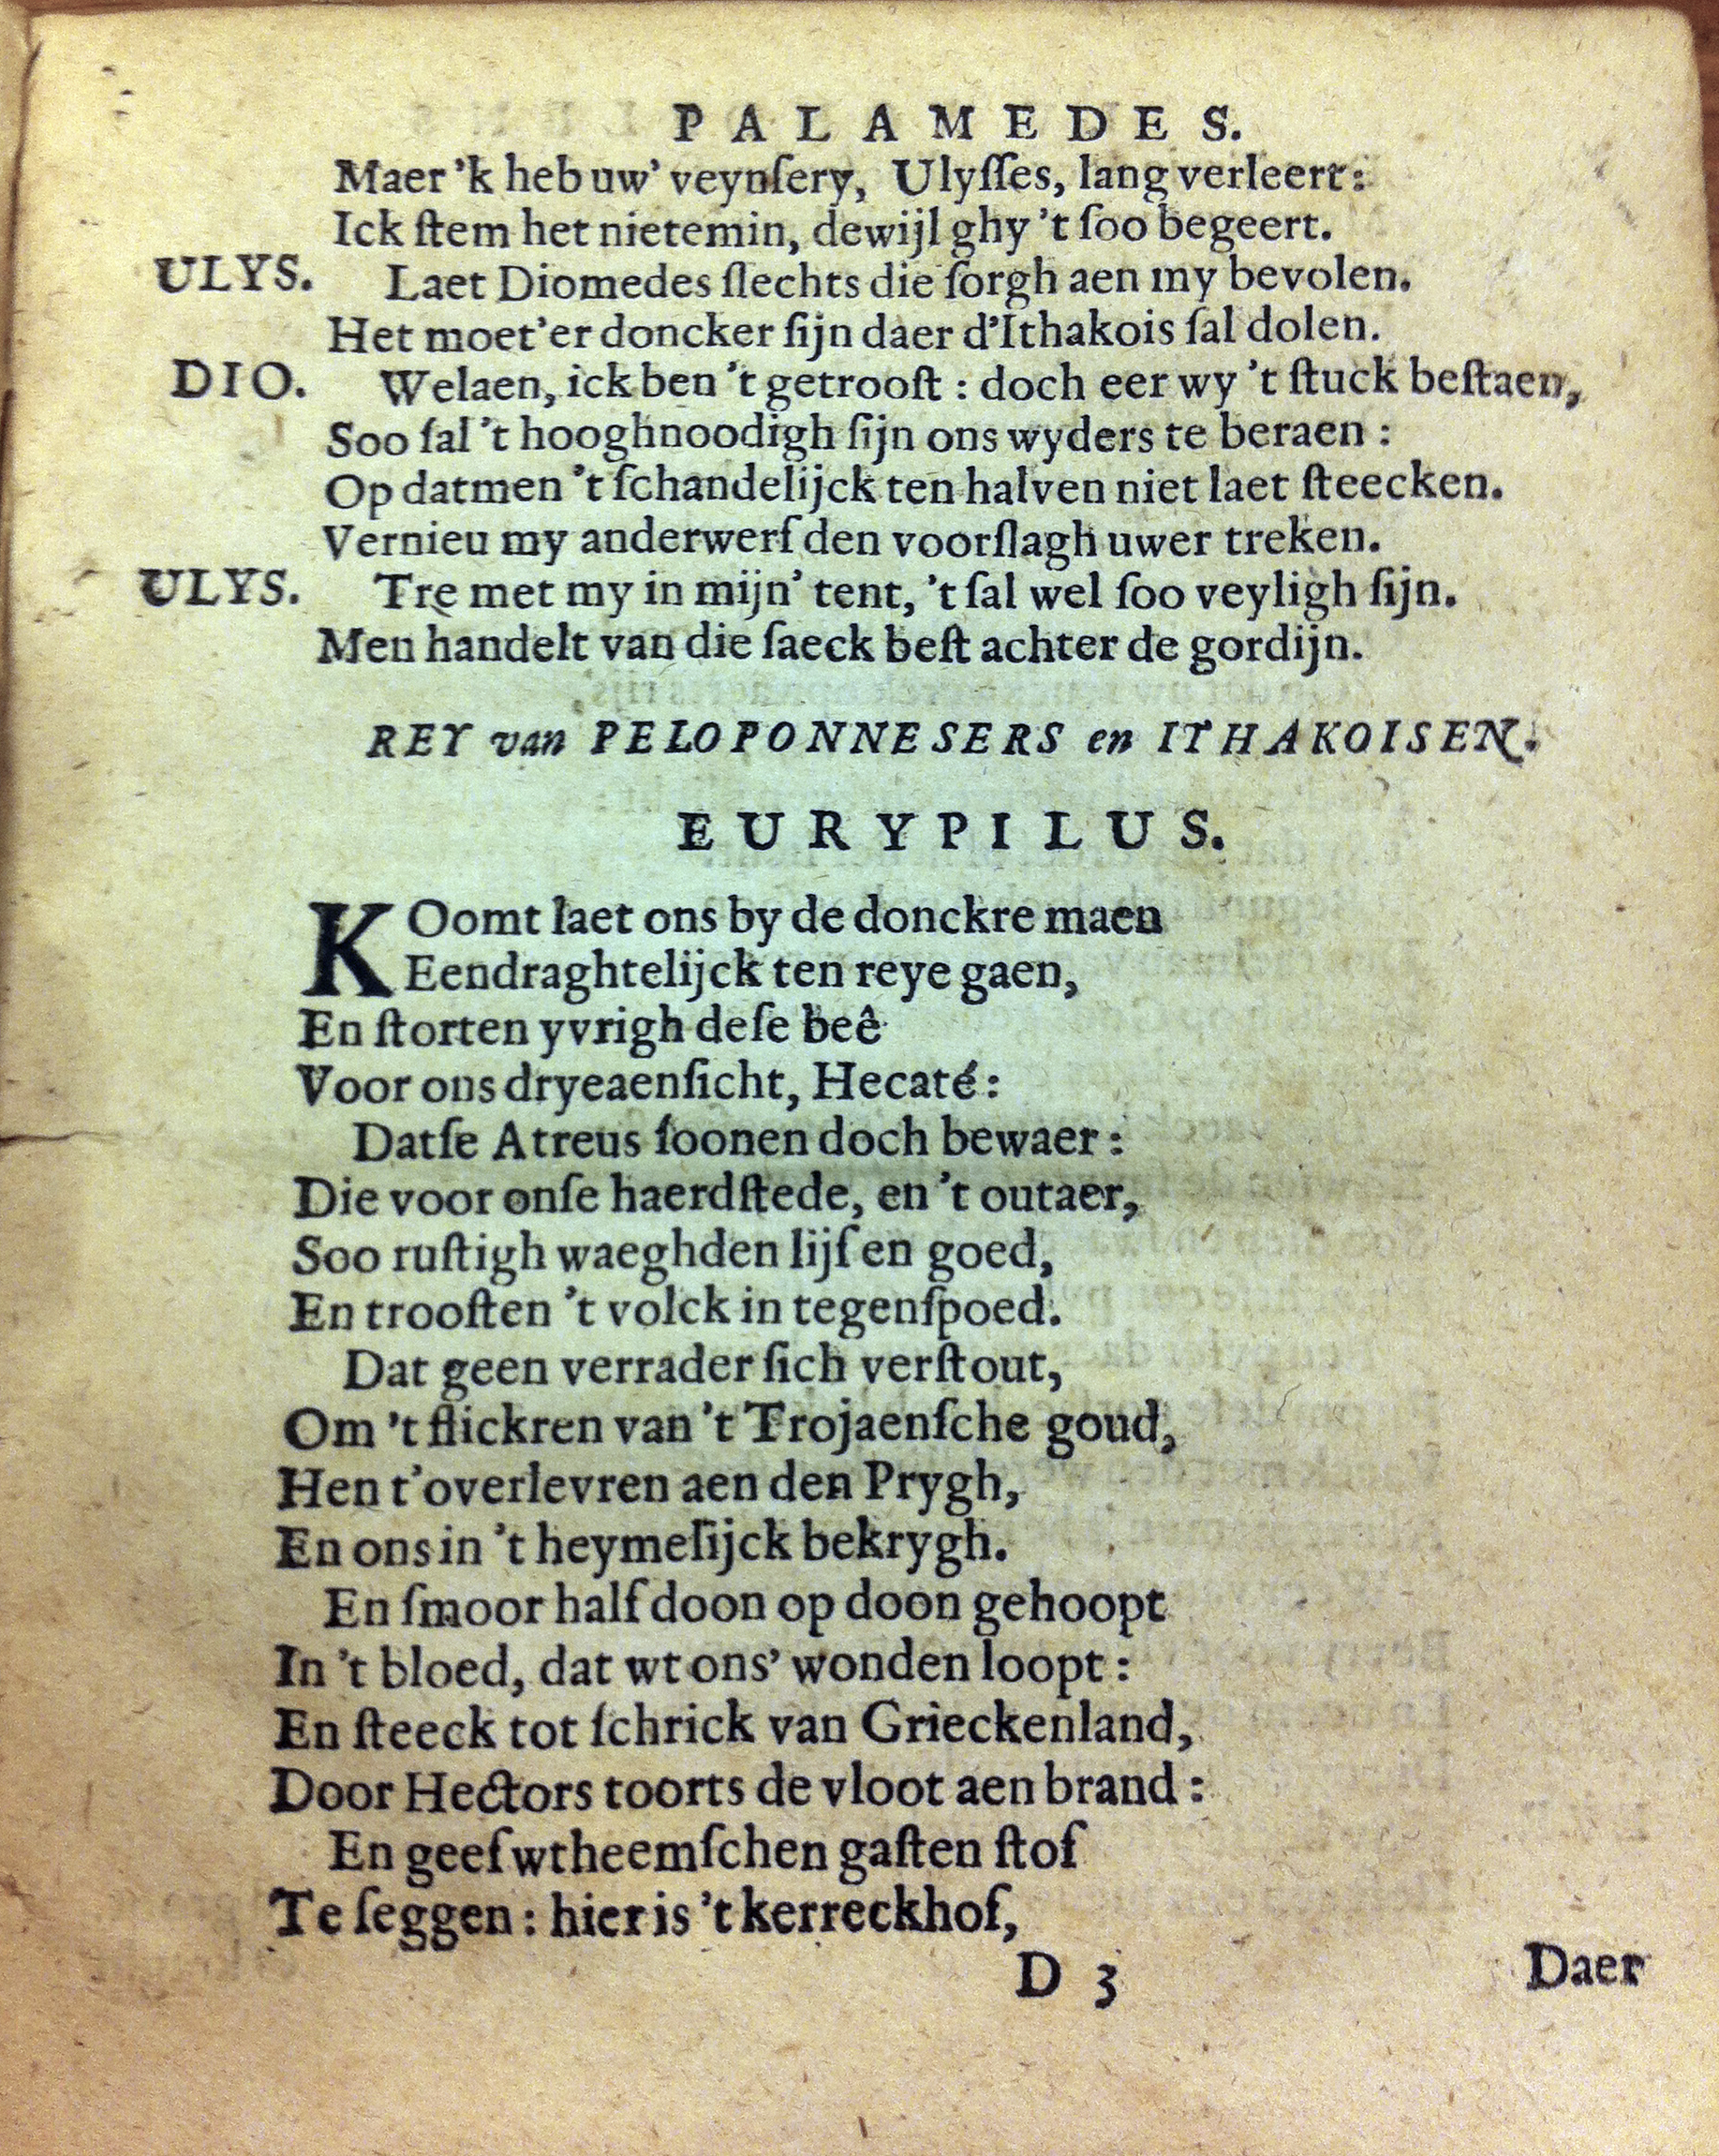 PALAMEDES.
Maer 'k heb uw' veynſery, Ulyſſes, lang verleert:
Ick ſtem het nietemin, dewijl ghy 't ſoo begeert.
ULYS. Laet Diomedes ſlechts die ſorgh aen my bevolen.
Het moet'er doncker ſijn daer d'Ithakois ſal dolen.
DIO. Welaen, ick ben 't getrooſt : doch eer wy 't ſtuck beſtaen,
Soo ſal 't hooghnoodigh ſijn ons wyders te beraen :
Op datmen 't ſchandelijck ten halven niet laet ſteecken.
Vernieu my anderwerf den voorſlagh uwer treken.
ULYS. Tre met my in mijn' tent, 't ſal wel ſoo veyligh ſijn.
Men handelt van die ſaeck beſt achter de gordijn.
REY van PELOPONNESERS en ITHAKOISEN.
EURYPILUS.
KOomt laet ons by de donckre maen
Eendraghtelijck ten reye gaen,
En ſtorten yvrigh deſe beê
Voor ons dryeaenſicht, Hecaté:
Datſe Atreus ſoonen doch bewaer :
Die voor onſe haerdſtede, en 't outaer,
Soo ruſtigh waeghden lijf en goed,
En trooſten 't volck in tegenſpoed.
Dat geen verrader ſich verſtout,
Om 't flickren van 't Trojaenſche goud,
Hen t'overlevren aen den Prygh,
En ons in 't heymelijck bekrygh.
En ſmoor half doon op doon gehoopt
In 't bloed, dat wt ons' wonden loopt :
En ſteeck tot ſchrick van Grieckenland,
Door Hectors toorts de vloot aen brand :
En geef wtheemſchen gaſten ſtof
Te ſeggen : hier is 't kerreckhof,
D 3 Daer